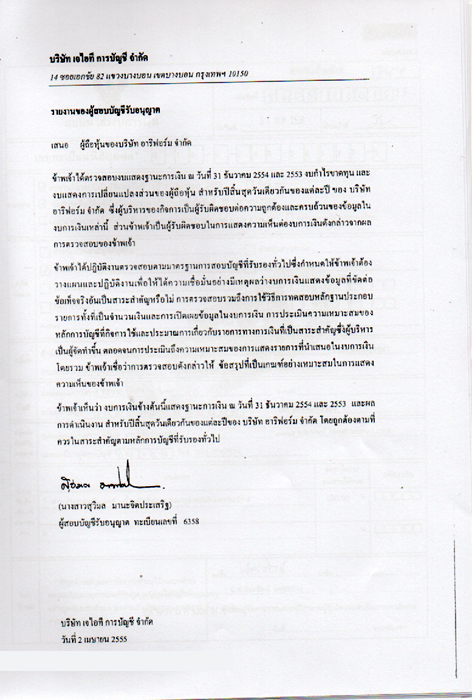 บริษัท เจไอที การบัญชี จำกัด
14 ซอยเอกชัย 82 แขวงบางบอน เขตบางบอน กรุงเทพฯ 10150
รายงานของผู้สอบบัญชีรับอนุญาต
เสนอ ผู้ถือหุ้นของบริษัท อาริฟอร์ม จำกัด
ข้าพเจ้าได้ตรวจสอบงบแสดงฐานะการเงิน ณ วันที่ 31 ธันวาคม 2554 และ 2553 งบกำไรขาดทุน และ
งบแสดงการเปลี่ยนแปลงส่วนของผู้ถือหุ้น สำหรับปีสิ้นสุดวันเดียวกันของแต่ละปี ของ บริษัท
อาริฟอร์ม จำกัด ซึ่งผู้บริหารของกิจการเป็นผู้รับผิดชอบต่อความถูกต้องและครบถ้วนของข้อมูลใน
งบการเงินเหล่านี้ ส่วนข้าพเจ้าเป็นผู้รับผิดชอบในการแสดงความเห็นต่องบการเงินดังกล่าวจากผล
การตรวจสอบของข้าพเจ้า
ข้าพเจ้าได้ปฏิบัติงานตรวจสอบตามมาตรฐานการสอบบัญชีที่รับรองทั่วไปซึ่งกำหนดให้ข้าพเจ้าต้อง
วางแผนและปฏิบัติงานเพื่อให้ได้ความเชื่อมั่นอย่างมีเหตุผลว่างบการเงินแสดงข้อมูลที่ขัดต่อ
ข้อเท็จจริงอันเป็นสาระสำคัญหรือไม่ การตรวจสอบรวมถึงการใช้วิธีการทดสอบหลักฐานประกอบ
รายการทั้งที่เป็นจำนวนเงินและการเปิดเผยข้อมูลในงบการเงิน การประเมินความเหมาะสมของ
หลักการบัญชีที่กิจการใช้และประมาณการเกี่ยวกับรายการทางการเงินที่เป็นสาระสำคัญซึ่งผู้บริหาร
เป็นผู้จัดทำขึ้น ตลอดจนการประเมินถึงความเหมาะสมของการแสดงรายการที่นำเสนอในงบการเงิน
โดยรวม ข้าพเจ้าเชื่อว่าการตรวจสอบดังกล่าวให้ ข้อสรุปที่เป็นเกณฑ์อย่างเหมาะสมในการแสดง
ความเห็นของข้าพเจ้า
ข้าพเจ้าเห็นว่า งบการเงินข้างต้นนี้แสดงฐานะการเงิน ณ วันที่ 31 ธันวาคม 2554 และ 2553 และผล
การดำเนินงาน สำหรับปีสิ้นสุดวันเดียวกันของแต่ละปีของ บริษัท อาริฟอร์ม จำกัด โดยถูกต้องตามที่
ควรในสาระสำคัญตามหลักการบัญชีที่รับรองทั่วไป
(นางสาวสุวิมล มานะจิตประเสริฐ)
ผู้สอบบัญชีรับอนุญาต ทะเบียนเลขที่ 6358
บริษัท เจไอที การบัญชี จำกัด
วันที่ 2 เมษายน 2555